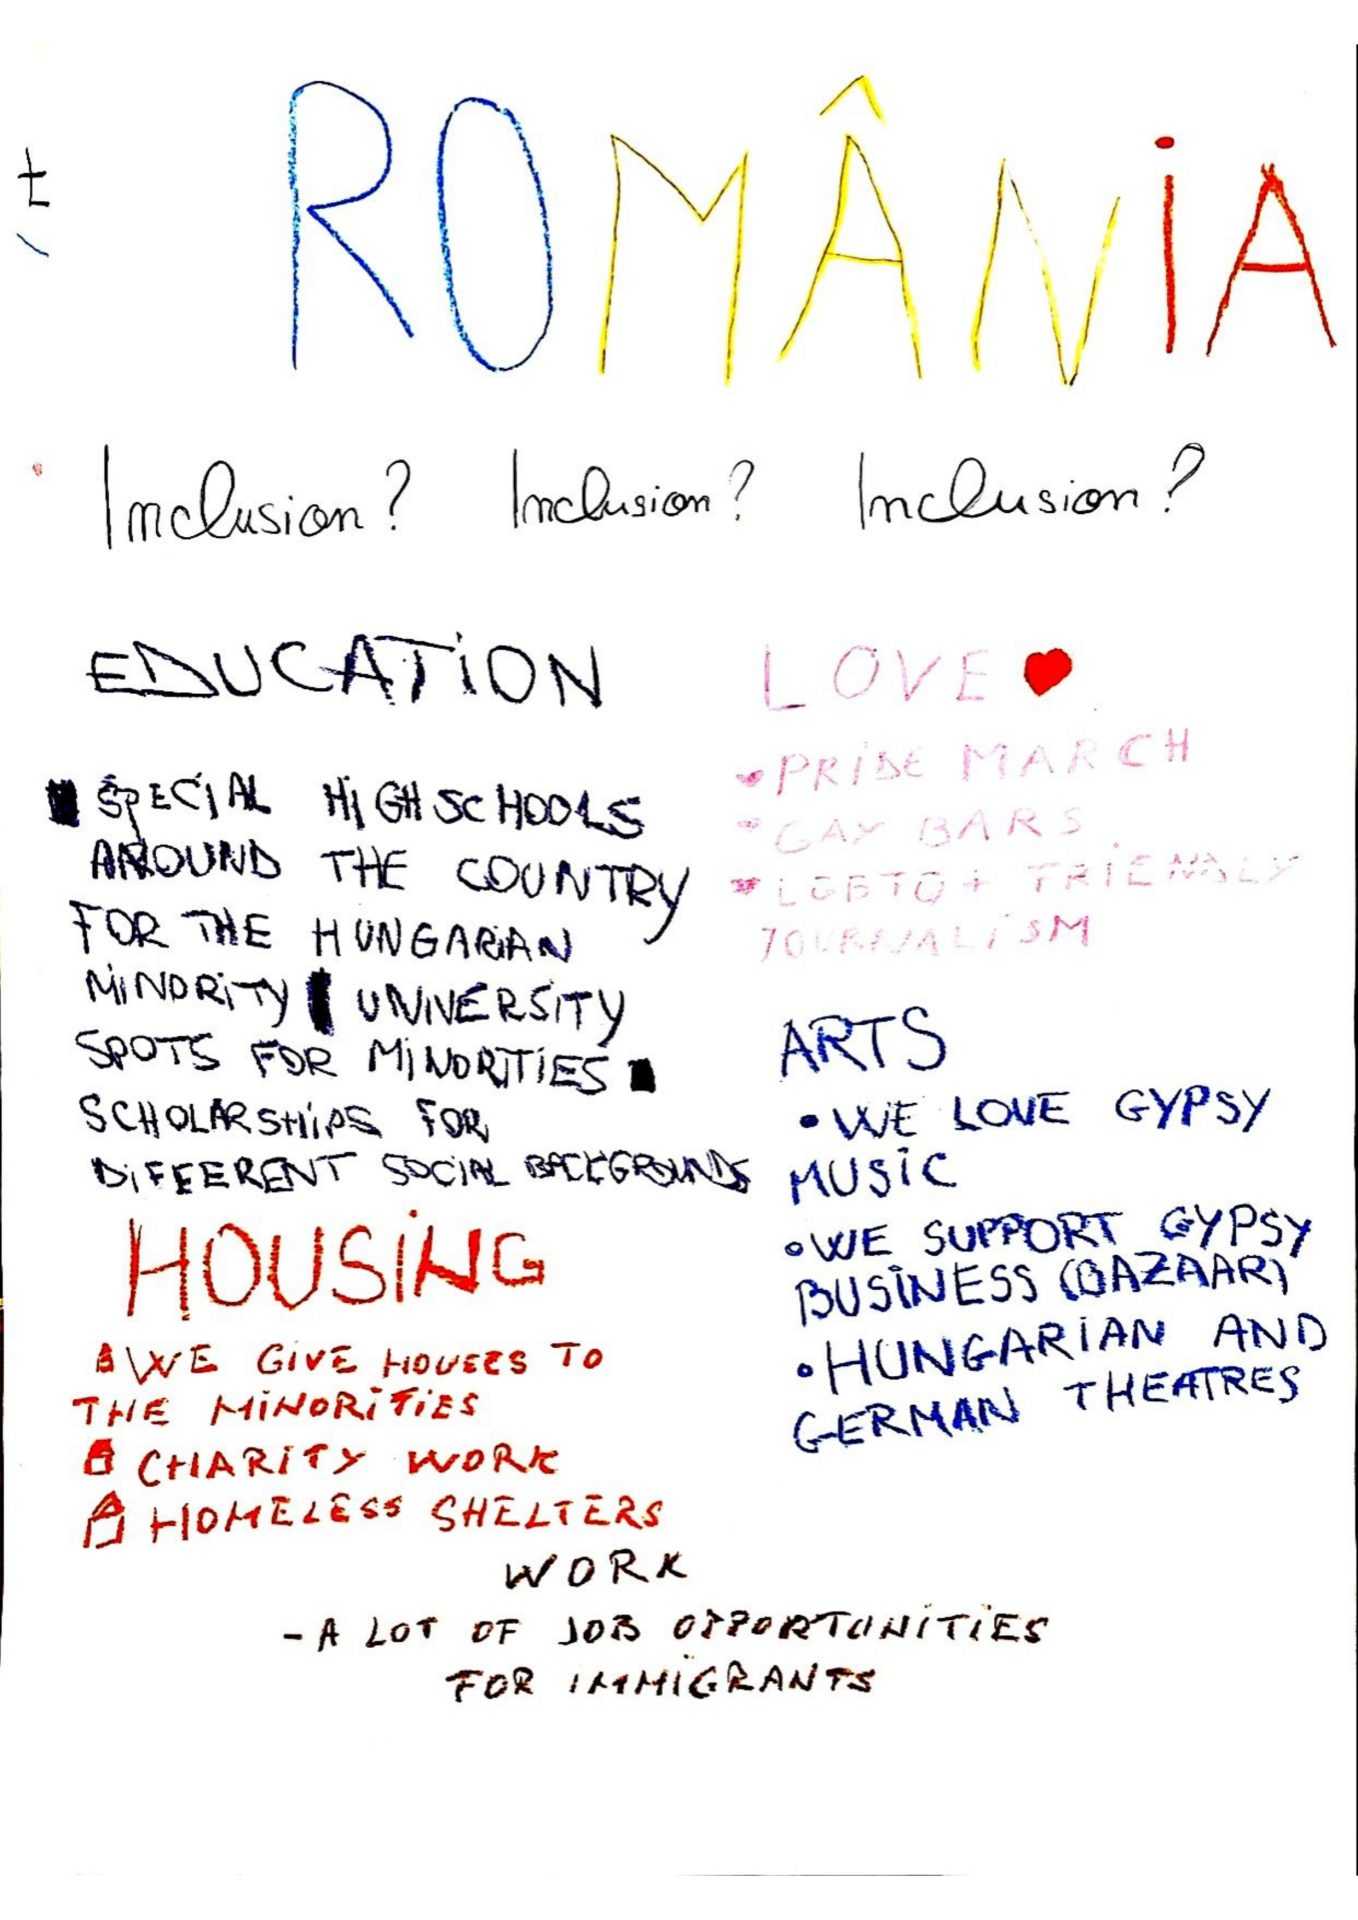 ROMÂNiA
t
Inclusion? Inclusion? Inclusion?
EDUCATiON
SPECIAL HIGHSCHOOLS
AROUND THE COUNTRY
FOR THE HUNGARIAN
MINORITY UNIVERSITY
SPOTS FOR MINORITIES
SCHOLARSHIPS FOR
DIFFERENT SOCIAL BACKGROUNDS
LOVE
PRIDE MARCH
GAY BARS
LGBTQ+ FRIENDLY
JOURNALISM
ARTS
• WE LOVE GYPSY
MUSIC
• WE SUPPORT GYPSY
BUSINESS (BAZAAR)
• HUNGARIAN AND
GERMAN THEATRES
HOUSING
WE GIVE HOUSES TO
THE MINORITIES
CHARITY WORK
HOMELESS SHELTERS
WORK
- A LOT OF JOB OPPORTUNITIES
FOR IMMIGRANTS